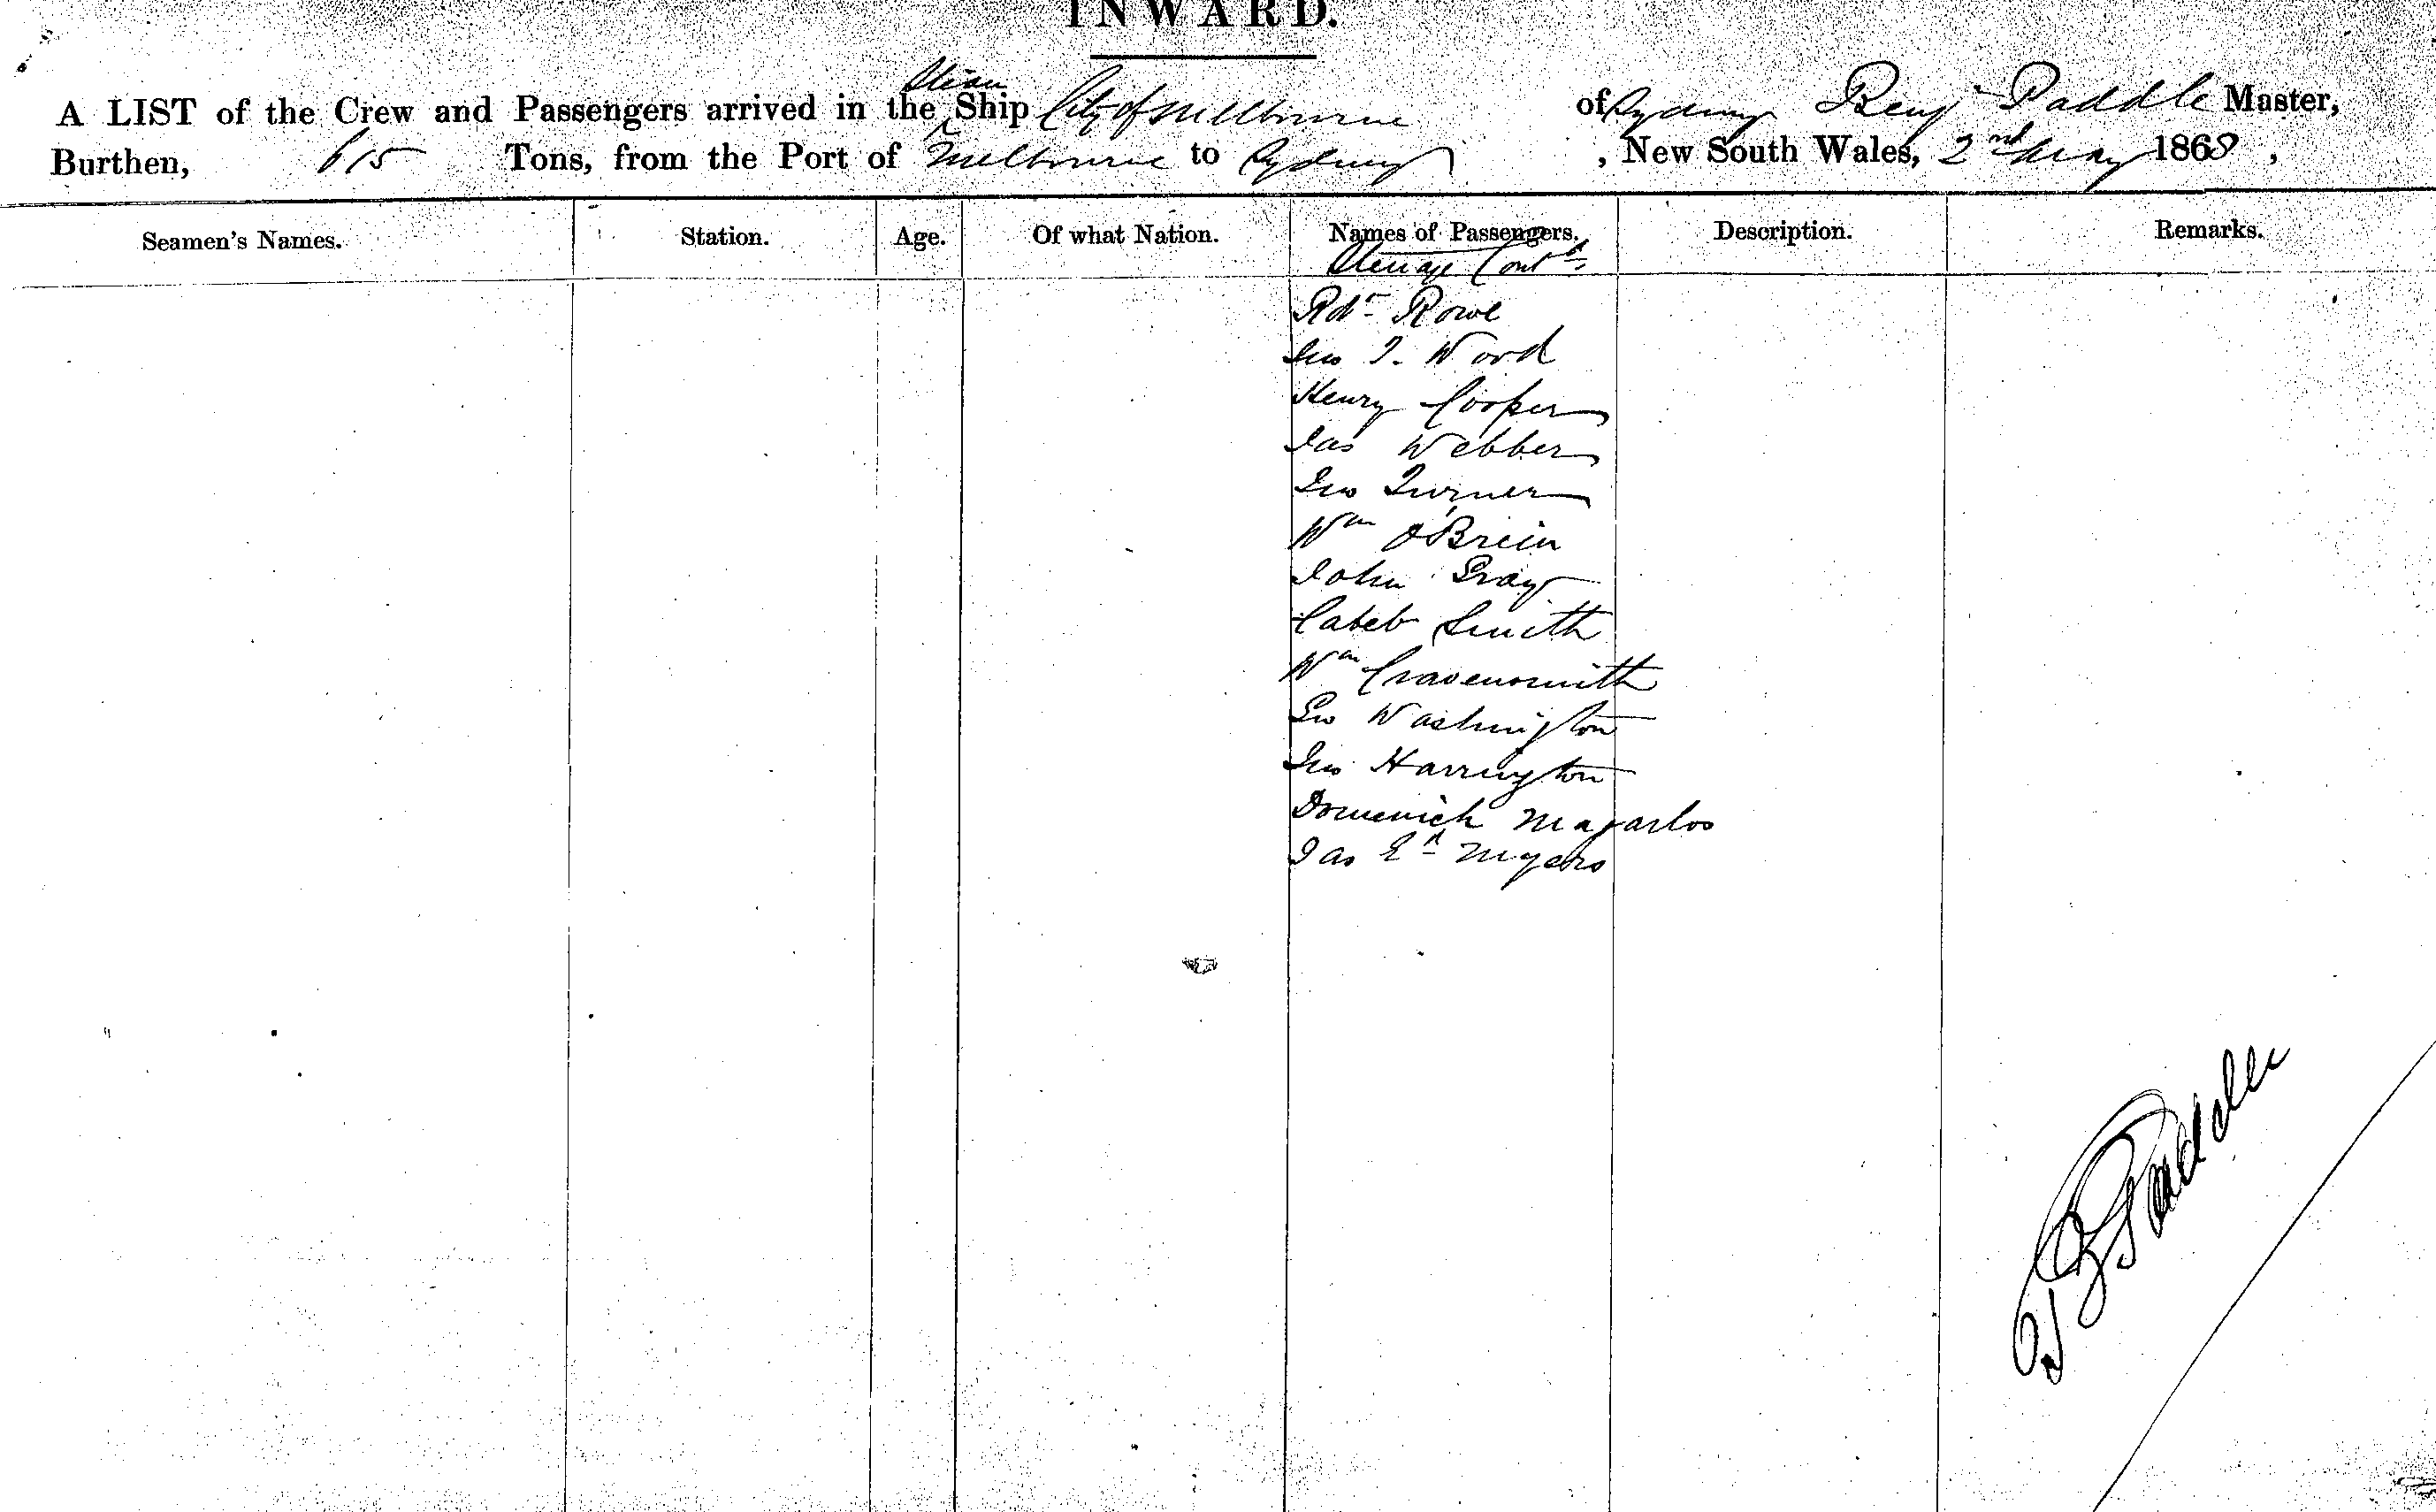 INWARD.
A LIST of the Crew and Passengers arrived in the Steam Ship City of Melbourne of Sydney Benj Paddle Master,
Burthen, 615 Tons, from the Port of Melbourne to Sydney, New South Wales, 2nd May 1868,
Seamen's Names. Station. Age. Of what Nation. Names of Passengers. Description. Remarks.
Steerage Contd.
Rdr Rowe
Jno T. Word
Henry Cooper
Jas Webber
Jno Turner
Wm O'Brein
John Gray
Caleb Smith
Wm Cravensmith
Geo Washington
Jno Harrington
Domenich
Jas Ed Myers
Paddle